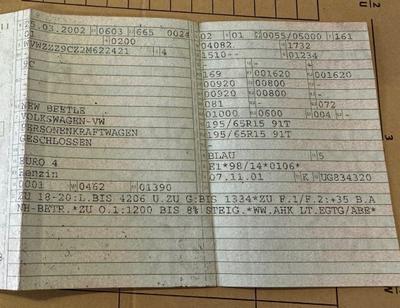 25.03.2002 0603 665 0024 02 01 0055/05000 161
01 0200 04082. 1732
WVWZZZ9CZ2M622421 4 1510-- 01234
- -
9C 169 001620 001620
00920 00800 -
00920 00800 -
081 - 072
NEW BEETLE 01000 0600 004 -
VOLKSWAGEN-VW 195/65R15 91T
PERSONENKRAFTWAGEN 195/65R15 91T
GESCHLOSSEN
BLAU 5
EURO 4 E1*98/14*0106*
Benzin 07.11.01 K UG834320
0001 0462 01390
ZU 18-20:L.BIS 4206 U.ZU G:BIS 1334*ZU F.1/F.2:+35 B.A
NH-BETR.*ZU O.1:1200 BIS 8% STEIG.*WW.AHK LT.EGTG/ABE*
3